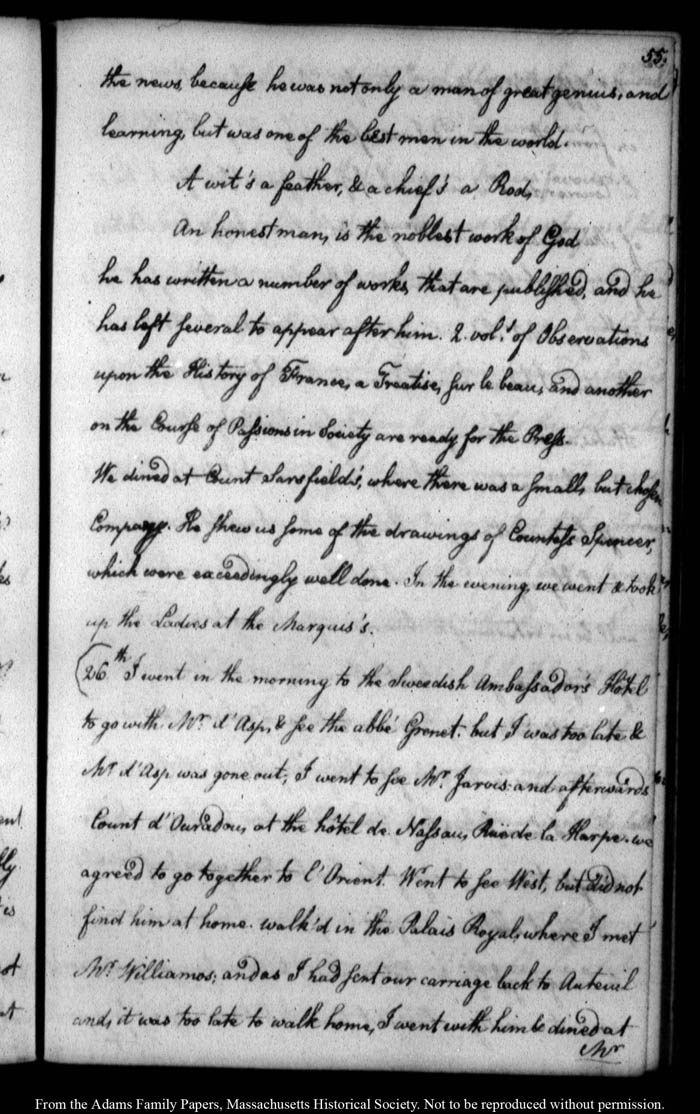 55.
the news, because he was not only a man of great genius, and
learning, but was one of the best men in the world.
A wit's a feather, & a chief's a Rod,
An honest man, is the noblest work of God
he has written a number of works, that are published, and he
has left several to appear after him. 2. vols. of Observations
upon the History of France, a Treatise, sur le beau, and another
on the Course of Passions in Society are ready for the Press.
We dined at Count Sarsfield's, where there was a small, but chosen
Company. He shew us some of the drawings of Countess Spencer,
which were exceedingly well done. In the evening, we went & took
up the Ladies at the Marquis's.
26th I went in the morning to the Sweedish Ambassador's Hôtel
to go with Mr. d'Asp, & see the abbé Grenet. but I was too late &
Mr. d'Asp was gone out, I went to see Mr. Jarvis: and afterwards
Count d'Ouradou, at the hôtel de Nassau, Ruë de la Harpe. we
agreed to go together to l'Orient. Went to see West, but did not
find him at home. walk'd in the Palais Royal, where I met
Mr. Williamos; and as I had sent our carriage back to Auteuil
and, it was too late to walk home, I went with him & dined at
Mr
From the Adams Family Papers, Massachusetts Historical Society. Not to be reproduced without permission.